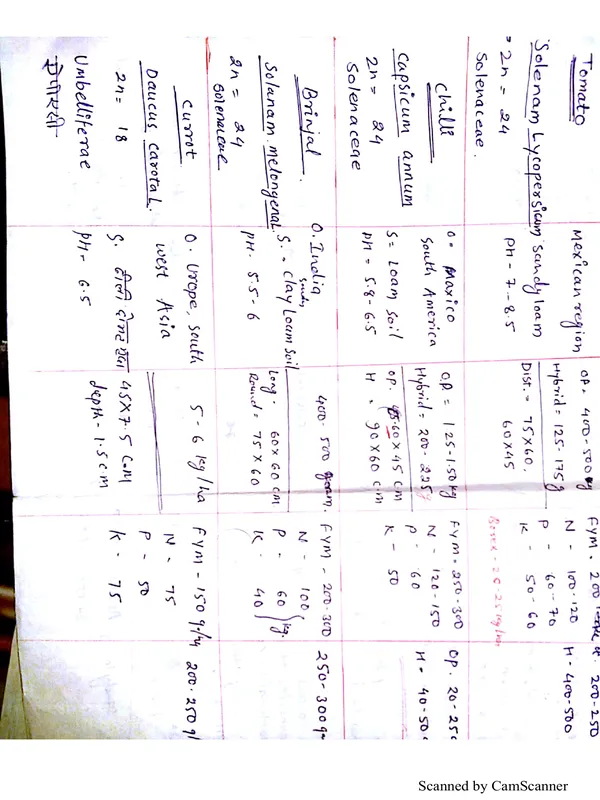 Tomato
Solenam Lycopersicum
= 2n = 24
Solenaceae.
Mexican region
Sandy loam
PH - 7 - 8.5
OP. 400-500 g
Hybrid = 125-175 g
Dist. = 75 x 60,
60 x 45
FYM. 200
N - 100-120
P - 60-70
K - 50-60
200-250
H - 400-500
Chilli
Capsicum annum
2n = 24
Solenaceae
O. Maxico
South America
S = Loam soil
PH = 5.8-6.5
OP = 1.25-1.50 kg
Hybrid = 200-225 g
OP. 60 x 45 cm
H. 90 x 60 c.m
FYM = 250-300
N - 120-150
P - 60
K - 50
OP. 20-250
H - 40-50
Brinjal.
Solanam melongenal.
2n = 24
Solenaceae
O. India
S. - clay loam soil
PH - 5.5-6
400-500 gram.
Long - 60 x 60 cm
Round = 75 x 60
FYM - 200-300
N - 100
P - 60 kg.
K - 40
250-300
Currot
Daucus carotal.
2n = 18
Umbelliferae
O. Urope, south
west Asia
S.
PH - 6.5
5 - 6 kg/ha
45 x 7.5 c.m
depth - 1.5 cm
FYM - 150 q/h
N - 75
P - 50
K - 75
200-250 q/
Scanned by CamScanner